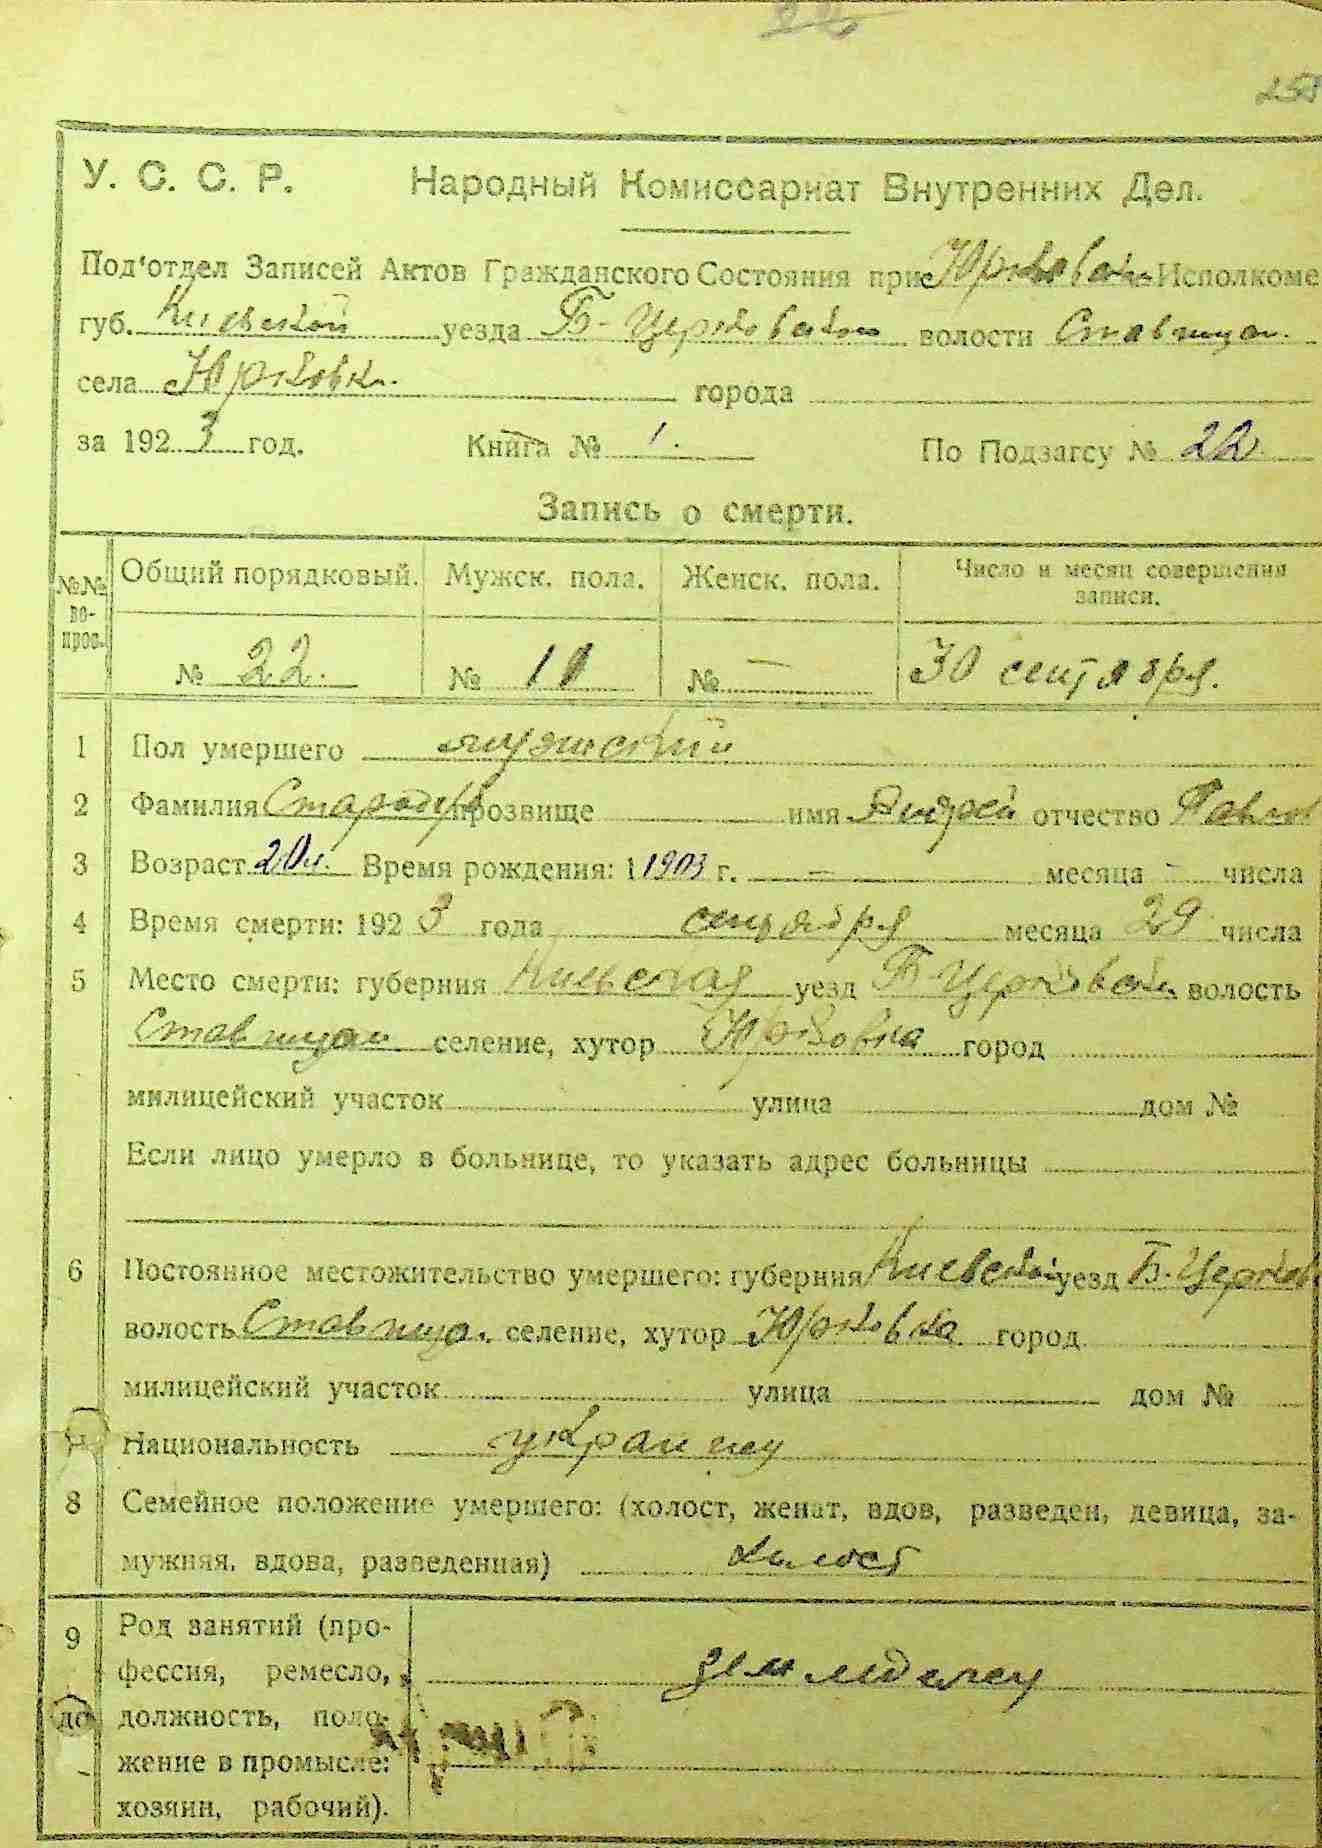 258
У. С. С. Р. Народный Комиссариат Внутренних Дел.
Под'отдел Записей Актов Гражданского Состояния при Юрковском Исполкоме
губ. Киевской уезда Б-Церковском волости Ставищан.
села Юрковки. города
за 1923 год. Книга № 1. По Подзагсу № 22
Запись о смерти.
№№ вопрос. Общий порядковый. Мужск. пола. Женск. пола. Число и месяц совершения записи.
№ 22. № 11 № — 30 сентября.
1 Пол умершего мужский
2 Фамилия Стародуб прозвище имя Андрей отчество Павлов
3 Возраст 20 л. Время рождения: 1 1903 г. — месяца - числа
4 Время смерти: 1923 года сентября месяца 29 числа
5 Место смерти: губерния Киевская уезд Б-Церковский волость
Ставищан селение, хутор Юрковка город
милицейский участок улица дом №
Если лицо умерло в больнице, то указать адрес больницы
6 Постоянное местожительство умершего: губерния Киевской уезд Б-Церков
волость Ставищан. селение, хутор Юрковка город
милицейский участок улица дом №
Национальность украинец
8 Семейное положение умершего: (холост, женат, вдов, разведен, девица, за-
мужняя, вдова, разведенная) холост
9 Род занятий (про-
фессия, ремесло, земледелец
до должность, поло-
жение в промысле:
хозяин, рабочий).